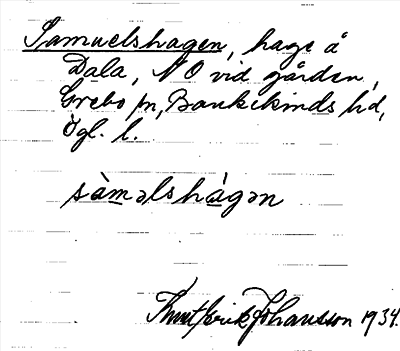 Samuelshagen, hage å
Dala, NO vid gården,
Grebo sn, Bankekinds hd,
Ögl. l.
sàməlshágən
Knut Erik Johansson 1934.